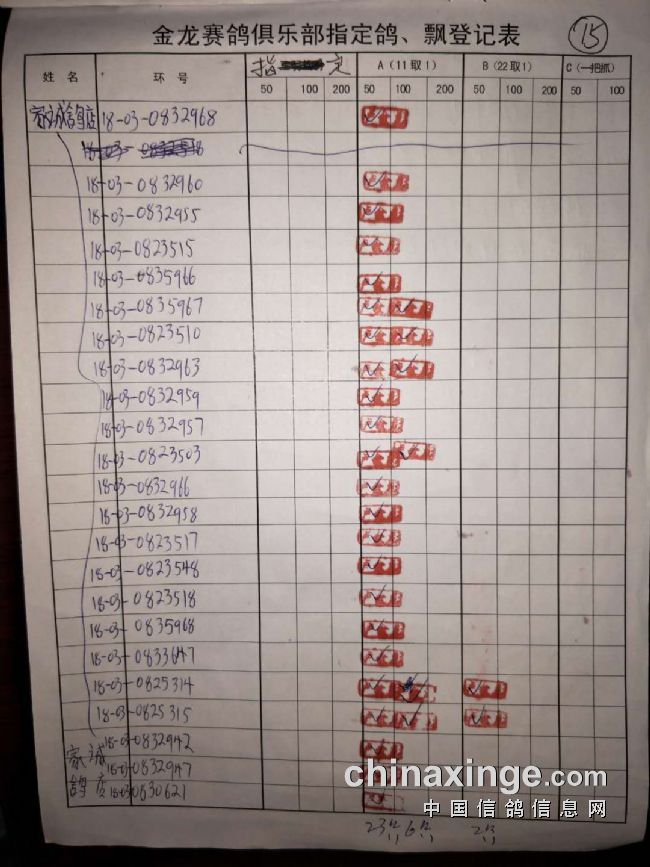 金龙赛鸽俱乐部指定鸽、飘登记表 15
姓名 环号 指定 A(11取1) B(22取1) C(一把抓)
50 100 200 50 100 200 50 100 200 50 100
家诚信鸽店 18-03-0832968
18-03-
18-03-0832960
18-03-0832955
18-03-0823515
18-03-0835966
18-03-0835967
18-03-0823510
18-03-0832963
18-03-0832959
18-03-0832957
18-03-0823503
18-03-0832966
18-03-0832958
18-03-0823517
18-03-0823548
18-03-0823518
18-03-0835968
18-03-0833647
18-03-0825314
18-03-0825315
家诚 18-03-0832942
18-03-0832947
鸽店 18-03-0830621
chinaxinge.com
中国信鸽信息网
23只 6只 2只